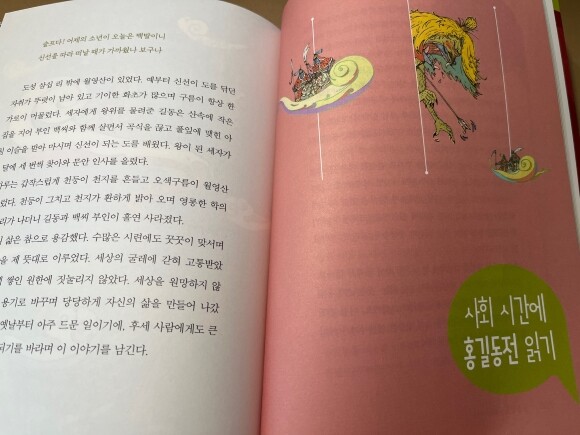 슬프다! 어제의 소년이 오늘은 백발이니
신선을 따라 떠날 때가 가까웠나 보구나
도성 삼십 리 밖에 월영산이 있었다. 예부터 신선이 도를 닦던
자취가 뚜렷이 남아 있고 기이한 화초가 많으며 구름이 항상 한
가로이 머물렀다. 세자에게 왕위를 물려준 길동은 산속에 작은
집을 지어 부인 백씨와 함께 살면서 곡식을 끊고 풀잎에 맺힌 아
이슬을 받아 마시며 신선이 되는 도를 배웠다. 왕이 된 세자가
달에 세 번씩 찾아와 문안 인사를 올렸다.
갑작스럽게 천둥이 천지를 흔들고 오색구름이 월영산
천둥이 그치고 천지가 환하게 밝아 오며 영롱한 학의
나더니 길동과 백씨 부인이 홀연 사라졌다.
삶은 참으로 용감했다. 수많은 시련에도 꿋꿋이 맞서며
제 뜻대로 이루었다. 세상의 굴레에 갇혀 고통받았
쌓인 원한에 짓눌리지 않았다. 세상을 원망하지 않
용기로 바꾸며 당당하게 자신의 삶을 만들어 나갔
옛날부터 아주 드문 일이기에, 후세 사람에게도 큰
되기를 바라며 이 이야기를 남긴다.
사회 시간에
홍길동전 읽기